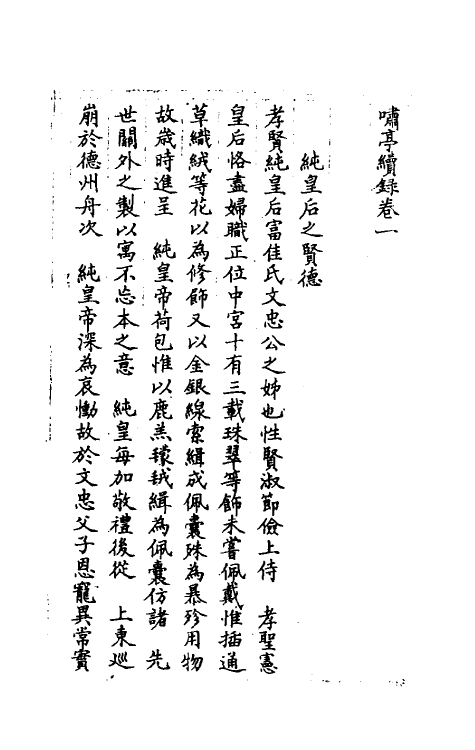 嘯亭續錄卷一
純皇后之賢德
孝賢純皇后富佳氏文忠公之姊也性賢淑節儉上侍　孝聖憲
皇后恪盡婦職正位中宮十有三載珠翠等飾未嘗佩戴惟插通
草織絨等花以為修飾又以金銀線索緝成佩囊殊為暴殄用物
故歲時進呈　純皇帝荷包惟以鹿羔𣯶毧緝為佩囊仿諸　先
世關外之製以寓不忘本之意　純皇每加敬禮後從　上東巡
崩於德州舟次　純皇帝深為哀慟故於文忠父子恩寵異常實